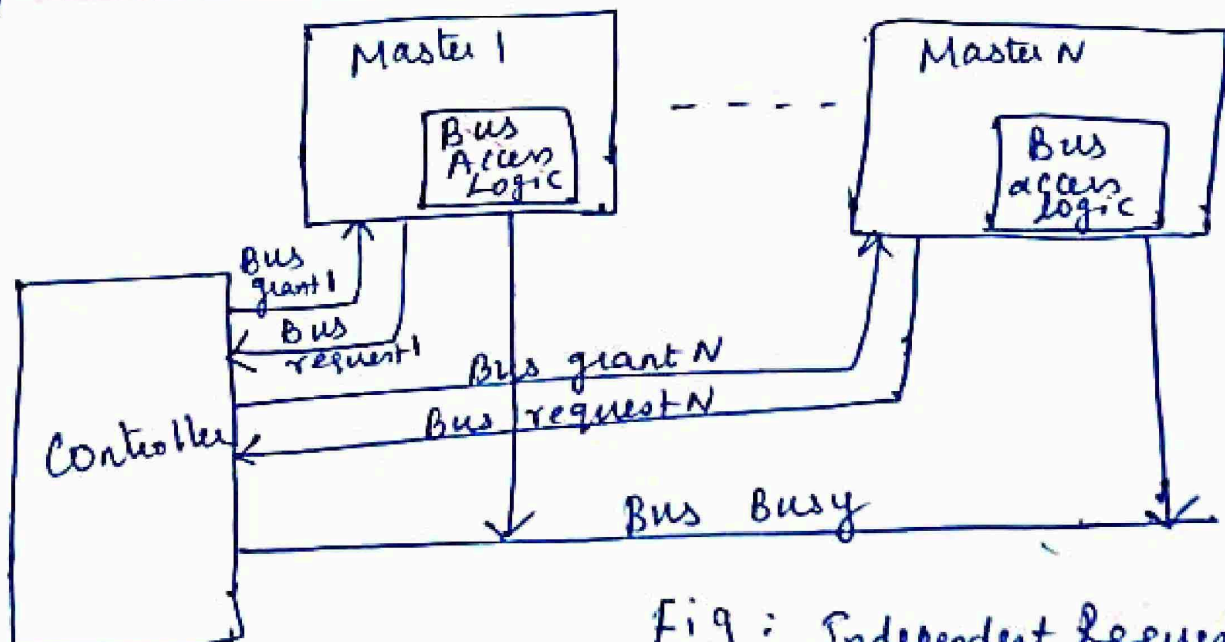 Master 1
Bus
Access
Logic
Master N
Bus
access
logic
Bus
grant 1
Bus
request 1
Bus grant N
Bus request N
Controller
Bus Busy
Fig : Independent Request